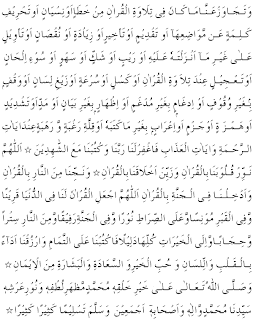 وَتَجَاوَزْ عَنَّا مَا كَانَ فِى تِلَاوَةِ الْقُرْاٰنِ مِنْ خَطَاٍ اَوْ نِسْيَانٍ اَوْ تَحْرِيْفِ
كَلِمَةٍ عَنْ مَّوَاضِعِهَا اَوْ تَقْدِيْمٍ اَوْ تَاْخِيْرٍ اَوْ زِيَادَةٍ اَوْ نُقْصَانٍ اَوْ تَاْوِيْلٍ
عَلٰى غَيْرِ مَا اَنْزَلْتَهٗ عَلَيْهِ اَوْ رَيْبٍ اَوْ شَكٍّ اَوْ سَهْوٍ اَوْ سُوْءِ اِلْحَانٍ
اَوْ تَعْجِيْلٍ عِنْدَ تِلَاوَةِ الْقُرْاٰنِ اَوْ كَسْلٍ اَوْ سُرْعَةٍ اَوْ زَيْغِ لِسَانٍ اَوْ وَقْفٍ
بِغَيْرِ وُقُوْفٍ اَوْ اِدْغَامٍ بِغَيْرِ مُدْغَمٍ اَوْ اِظْهَارٍ بِغَيْرِ بَيَانٍ اَوْ مَدٍّ اَوْ تَشْدِيْدٍ
اَوْ هَمْزَةٍ اَوْ جَزْمٍ اَوْ اِعْرَابٍ بِغَيْرِ مَا كَتَبَهٗ اَوْ قِلَّةِ رَغْبَةٍ وَّ رَهْبَةٍ عِنْدَ اٰيَاتِ
الرَّحْمَةِ وَاٰيَاتِ الْعَذَابِ فَاغْفِرْ لَنَا رَبَّنَا وَاكْتُبْنَا مَعَ الشّٰهِدِيْنَ ☆ اَللّٰهُمَّ
نَوِّرْ قُلُوْبَنَا بِالْقُرْاٰنِ وَزَيِّنْ اَخْلَاقَنَا بِالْقُرْاٰنِ ☆ وَنَجِّنَا مِنَ النَّارِ بِالْقُرْاٰنِ
وَاَدْخِلْنَا فِى الْجَنَّةِ بِالْقُرْاٰنِ اَللّٰهُمَّ اجْعَلِ الْقُرْاٰنَ لَنَا فِى الدُّنْيَا قَرِيْنًا
وَّفِى الْقَبْرِ مُوْنِسًا وَّعَلَى الصِّرَاطِ نُوْرًا وَّفِى الْجَنَّةِ رَفِيْقًا وَّمِنَ النَّارِ سِتْرًا
وَّحِجَابًا وَّاِلَى الْخَيْرَاتِ كُلِّهَا دَلِيْلًا فَاكْتُبْنَا عَلَى التَّمَامِ وَارْزُقْنَا اَدَاءً
بِالْقَلْبِ وَاللِّسَانِ وَ حُبَّ الْخَيْرِ وَ السَّعَادَةِ وَالْبَشَارَةِ مِنَ الْاِيْمَانِ ☆
وَ صَلَّى اللّٰهُ تَعَالٰى عَلٰى خَيْرِ خَلْقِهٖ مُحَمَّدٍ مَّظْهَرِ لُطْفِهٖ وَ نُوْرِ عَرْشِهٖ
سَيِّدِنَا مُحَمَّدٍ وَّاٰلِهٖ وَ اَصْحَابِهٖ اَجْمَعِيْنَ وَ سَلَّمَ تَسْلِيْمًا كَثِيْرًا كَثِيْرًا ☆